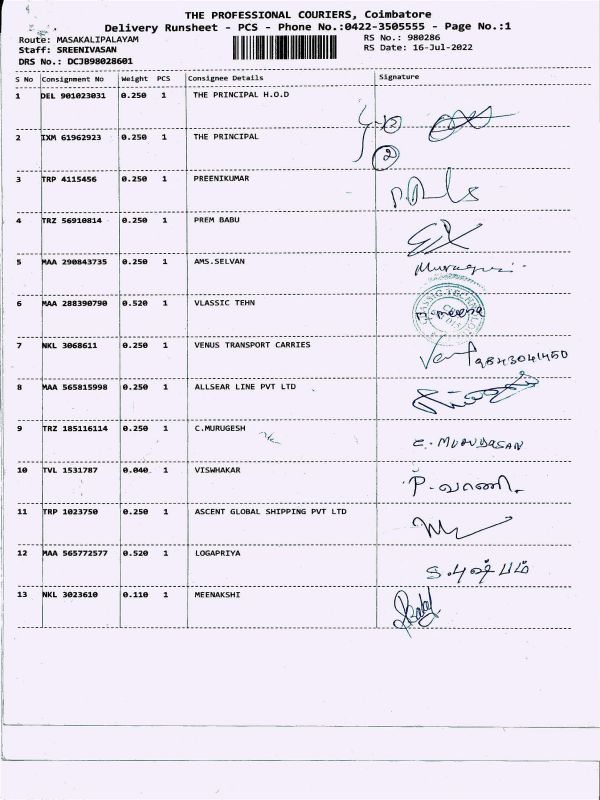 THE PROFESSIONAL COURIERS, Coimbatore
Delivery Runsheet - PCS - Phone No.:0422-3505555 - Page No.:1
Route: MASAKALIPALAYAM RS No.: 980286
Staff: SREENIVASAN RS Date: 16-Jul-2022
DRS No.: DCJB98028601
S No Consignment No Weight PCS Consignee Details Signature
1 DEL 901023031 0.250 1 THE PRINCIPAL H.O.D
2 IXM 61962923 0.250 1 THE PRINCIPAL 2
3 TRP 4115456 0.250 1 PREENIKUMAR
4 TRZ 56910814 0.250 1 PREM BABU
5 MAA 290843735 0.250 1 AMS.SELVAN
6 MAA 288390790 0.520 1 VLASSIC TEHN
7 NKL 3068611 0.250 1 VENUS TRANSPORT CARRIES 9843041450
8 MAA 565815998 0.250 1 ALLSEAR LINE PVT LTD
9 TRZ 185116114 0.250 1 C.MURUGESH
10 TVL 1531787 0.040 1 VISWHAKAR
11 TRP 1023750 0.250 1 ASCENT GLOBAL SHIPPING PVT LTD
12 MAA 565772577 0.520 1 LOGAPRIYA
13 NKL 3023610 0.110 1 MEENAKSHI